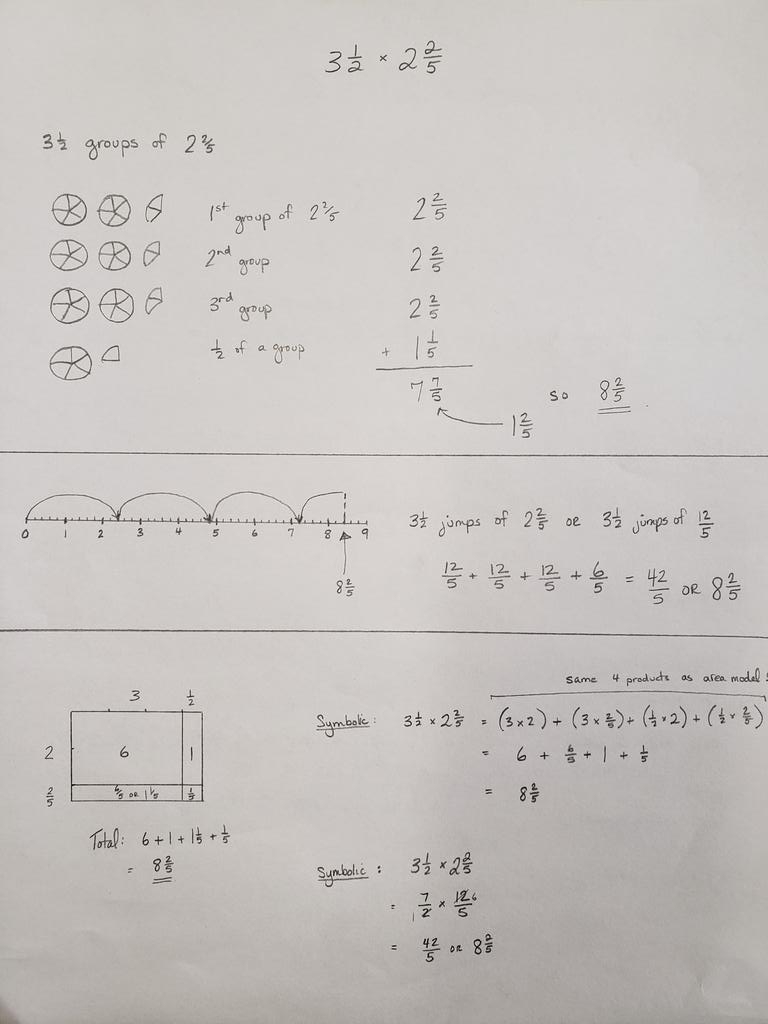 3 1/2 × 2 2/5
3 1/2 groups of 2 2/5
1st group of 2 2/5
2 2/5
2nd group
2 2/5
3rd group
2 2/5
1/2 of a group
+ 1 1/5
7 7/5
so 8 2/5
1 2/5
0 1 2 3 4 5 6 7 8 9
8 2/5
3 1/2 jumps of 2 2/5 or 3 1/2 jumps of 12/5
12/5 + 12/5 + 12/5 + 6/5 = 42/5 OR 8 2/5
3 1/2
2 6 1
2/5 6/5 OR 1 1/5 1/5
Total: 6 + 1 + 1 1/5 + 1/5
= 8 2/5
same 4 products as area model
Symbolic: 3 1/2 × 2 2/5 = (3 × 2) + (3 × 2/5) + (1/2 × 2) + (1/2 × 2/5)
= 6 + 6/5 + 1 + 1/5
= 8 2/5
Symbolic: 3 1/2 × 2 2/5
= 7/2 1 × 12/5 6
= 42/5 OR 8 2/5